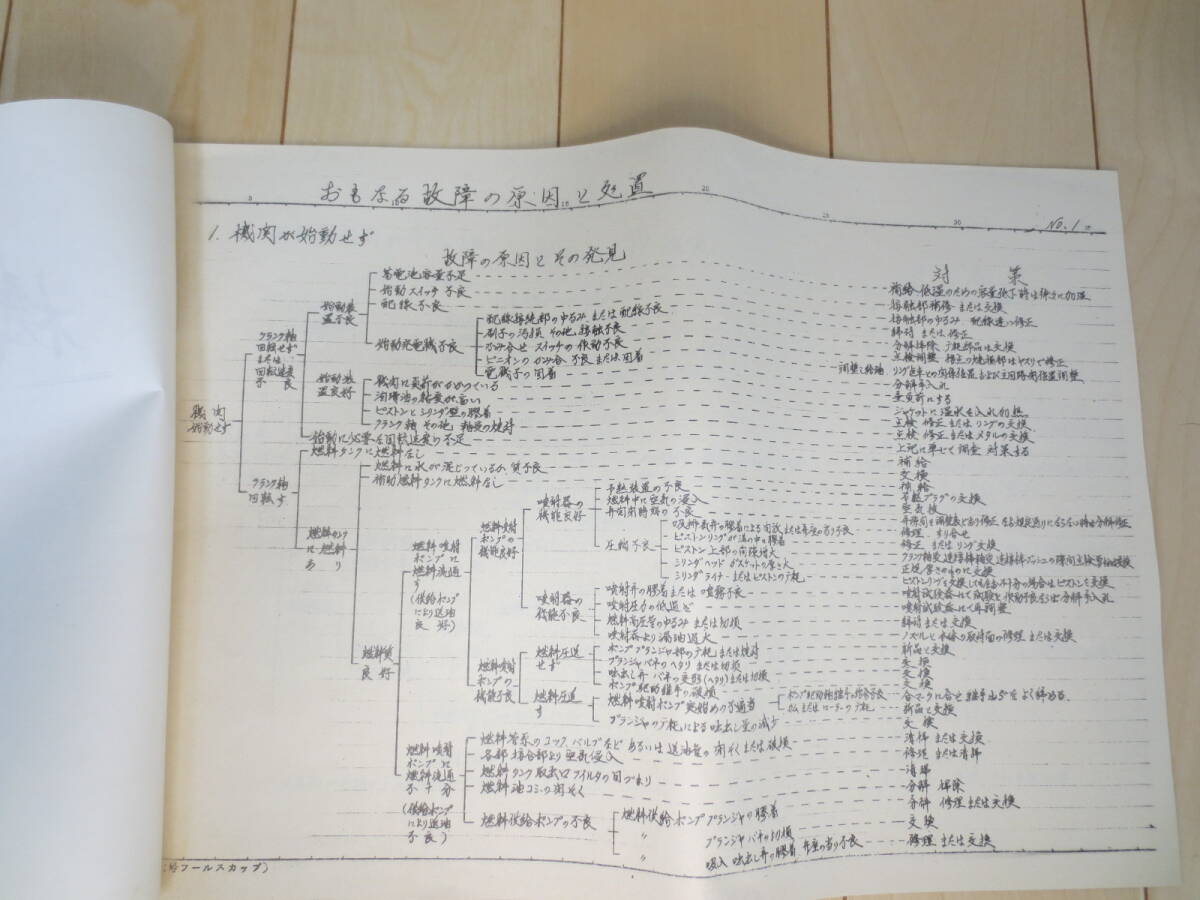 おもなる故障の原因と処置
5 10 15 20 25 30
No. 1
1. 機関が始動せず
故障の原因とその発見
対 策
機関始動せず
クランク軸回転せずまたは回転速度不良
始動装置不良
蓄電池容量不足
始動スイッチ不良
配線不良
始動充電機不良
配線接続部のゆるみまたは配線不良
刷子の汚損 その他 接触不良
かみ合せ スイッチの作動不良
ピニオンのかみ合 不良または固着
電機子の固着
始動装置良好
機関に負荷がかかつている
潤滑油の粘度が高い
ピストンとシリンダ壁の膠着
クランク軸 その他 軸受の焼付
始動に必要な回転速度の不足
クランク軸回転す
燃料タンクに燃料なし
燃料タンクに燃料あり
燃料に水が混じっているか,質不良
補助燃料タンクに燃料なし
燃料質良好
燃料噴射ポンプに燃料流通す
(供給ポンプにより送油良好)
燃料噴射ポンプの機能良好
噴射器の機能良好
予熱装置の不良
燃料中に空気の浸入
弁開閉時期の不良
圧縮不良
ピストンリングが溝の中の膠着
ピストン上部の間隙増大
シリンダヘッド ガスケットの厚さ大
シリンダライナーまたはピストンの摩耗
噴射器の機能不良
噴射弁の膠着または噴霧不良
噴射圧力の低過ぎ
燃料高圧管のゆるみまたは切損
噴射器より漏油過大
燃料噴射ポンプの機能不良
燃料圧送せず
ポンププランジャ部の摩耗または焼付
プランジャバネのヘタリまたは切損
吐出し弁 バネの変形(ヘタリ)または切損
ポンプ駆動継手の破損
燃料圧送す
燃料噴射ポンプ突始めの不適当
カムまたはローラーの摩耗
プランジャの摩耗による吐出し量の減少
燃料噴射ポンプに燃料流通不十分
(供給ポンプにより送油不良)
燃料管系のコック,バルブなどあるいは送油管の閉そくまたは破損
各部接合部より空気侵入
燃料タンク取出口フイルタの目づまり
燃料油コシの閉そく
燃料供給ポンプの不良
燃料供給ポンププランジャの膠着
〃 プランジャバネの切損
〃 吸入 吐出し弁の膠着 弁座の当り不良
補給 低温のための容量低下時は徐々に加温
接触部補修または交換
接触部のゆるみ 配線違い修正
締付または修正
分解掃除
調整し給油
分解手入れ
無負荷にする
ジャケットに温水を入れ加熱
点検 修正またはリングの交換
点検 修正またはメタルの交換
上記に準じて調査 対策する
補給
交換
補給
予熱プラグの交換
空気抜
修理 すり合せ
修正またはリング交換
正規厚さのものに交換
噴射試験器にて再調整
締付または交換
ノズルと本体の取付面の修理または交換
新品と交換
交換
交換
交換
合マークに合せ継手山Sをよく締める
新品と交換
交換
清掃または交換
修理または清掃
清掃
分解 掃除
分解 修理または交換
交換
修理または交換
フールスカップ)